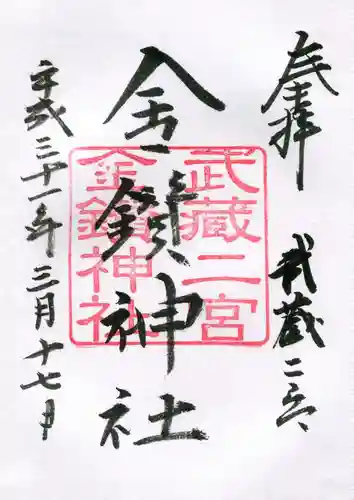 奉拝
武蔵二宮
金鑚神社
平成三十一年三月十七日
武蔵二宮
金鑚神社